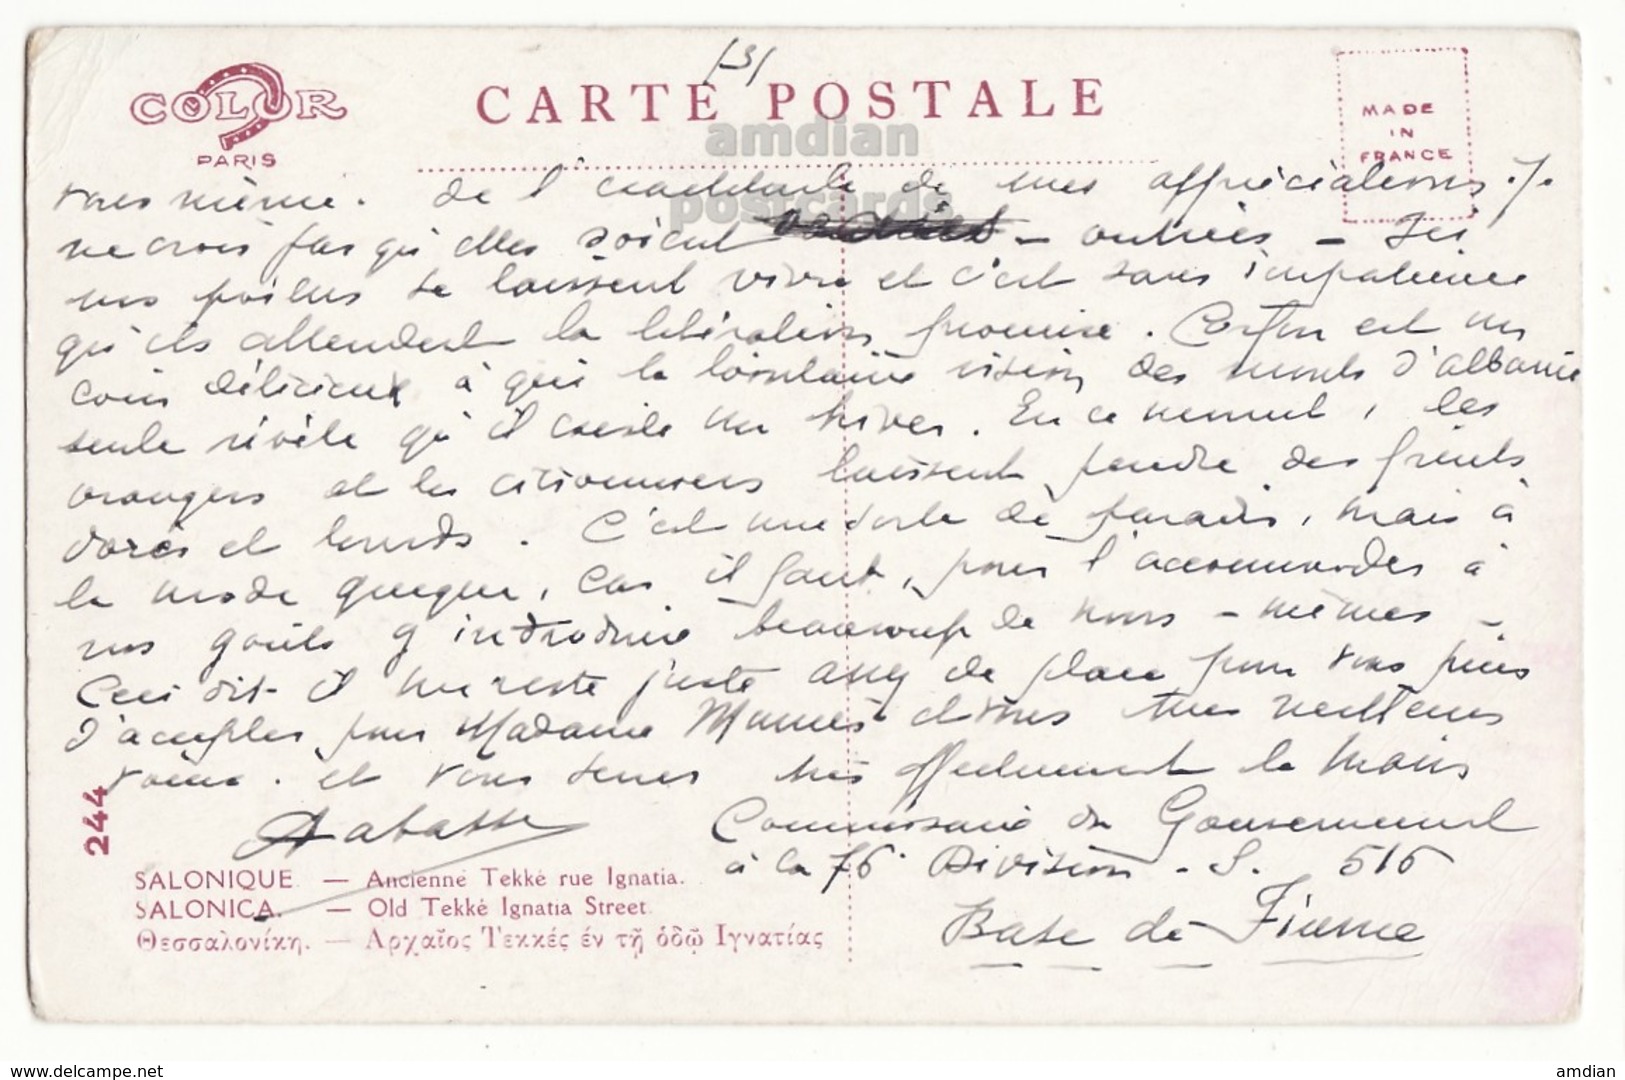 (3)
COLOR
PARIS
CARTE POSTALE
MADE
IN
FRANCE
amdian
postcards
vous même. de l'exactitude de mes appréciations. Je
ne crois pas qu'elles soient — outrées — Ici
nos poilus se laissent vivre et c'est sans impatience
qu'ils attendent la libération promise. Corfou est un
coin délicieux à qui la lointaine vision des monts d'Albanie
seule révèle qu'il existe un hiver. En ce moment, les
orangers et les citronniers laissent pendre des fruits
dorés et lourds. C'est une sorte de paradis, mais à
la mode grecque, car il faut, pour l'accommoder à
nos goûts y introduire beaucoup de nous-mêmes —
Ceci dit il me reste juste assez de place pour vous prier
d'accepter pour Madame et vous mes meilleurs
vœux. et vous serrer très affectueusement la main
Labatte
Commissaire du Gouvernement
à la 76e Division - S. 516
Base de Fiume
244
SALONIQUE — Ancienne Tekké rue Ignatia.
SALONICA. — Old Tekké Ignatia Street
Θεσσαλονίκη. — Αρχαῖος Τεκκές ἐν τῇ ὁδῷ Ιγνατίας
www.delcampe.net
amdian